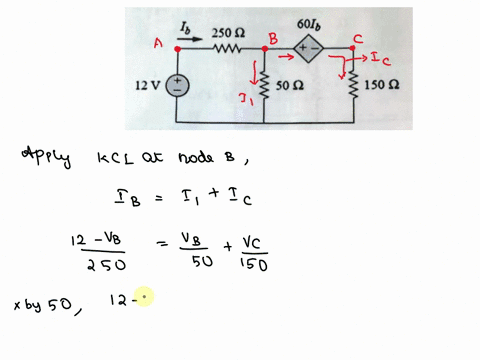 60Ib
Ib 250 Ω
A B C
IC
12 V 50 Ω 150 Ω
I1
Apply KCL at node B,
IB = I1 + IC
12 - VB / 250 = VB / 50 + VC / 150
x by 50, 12 -